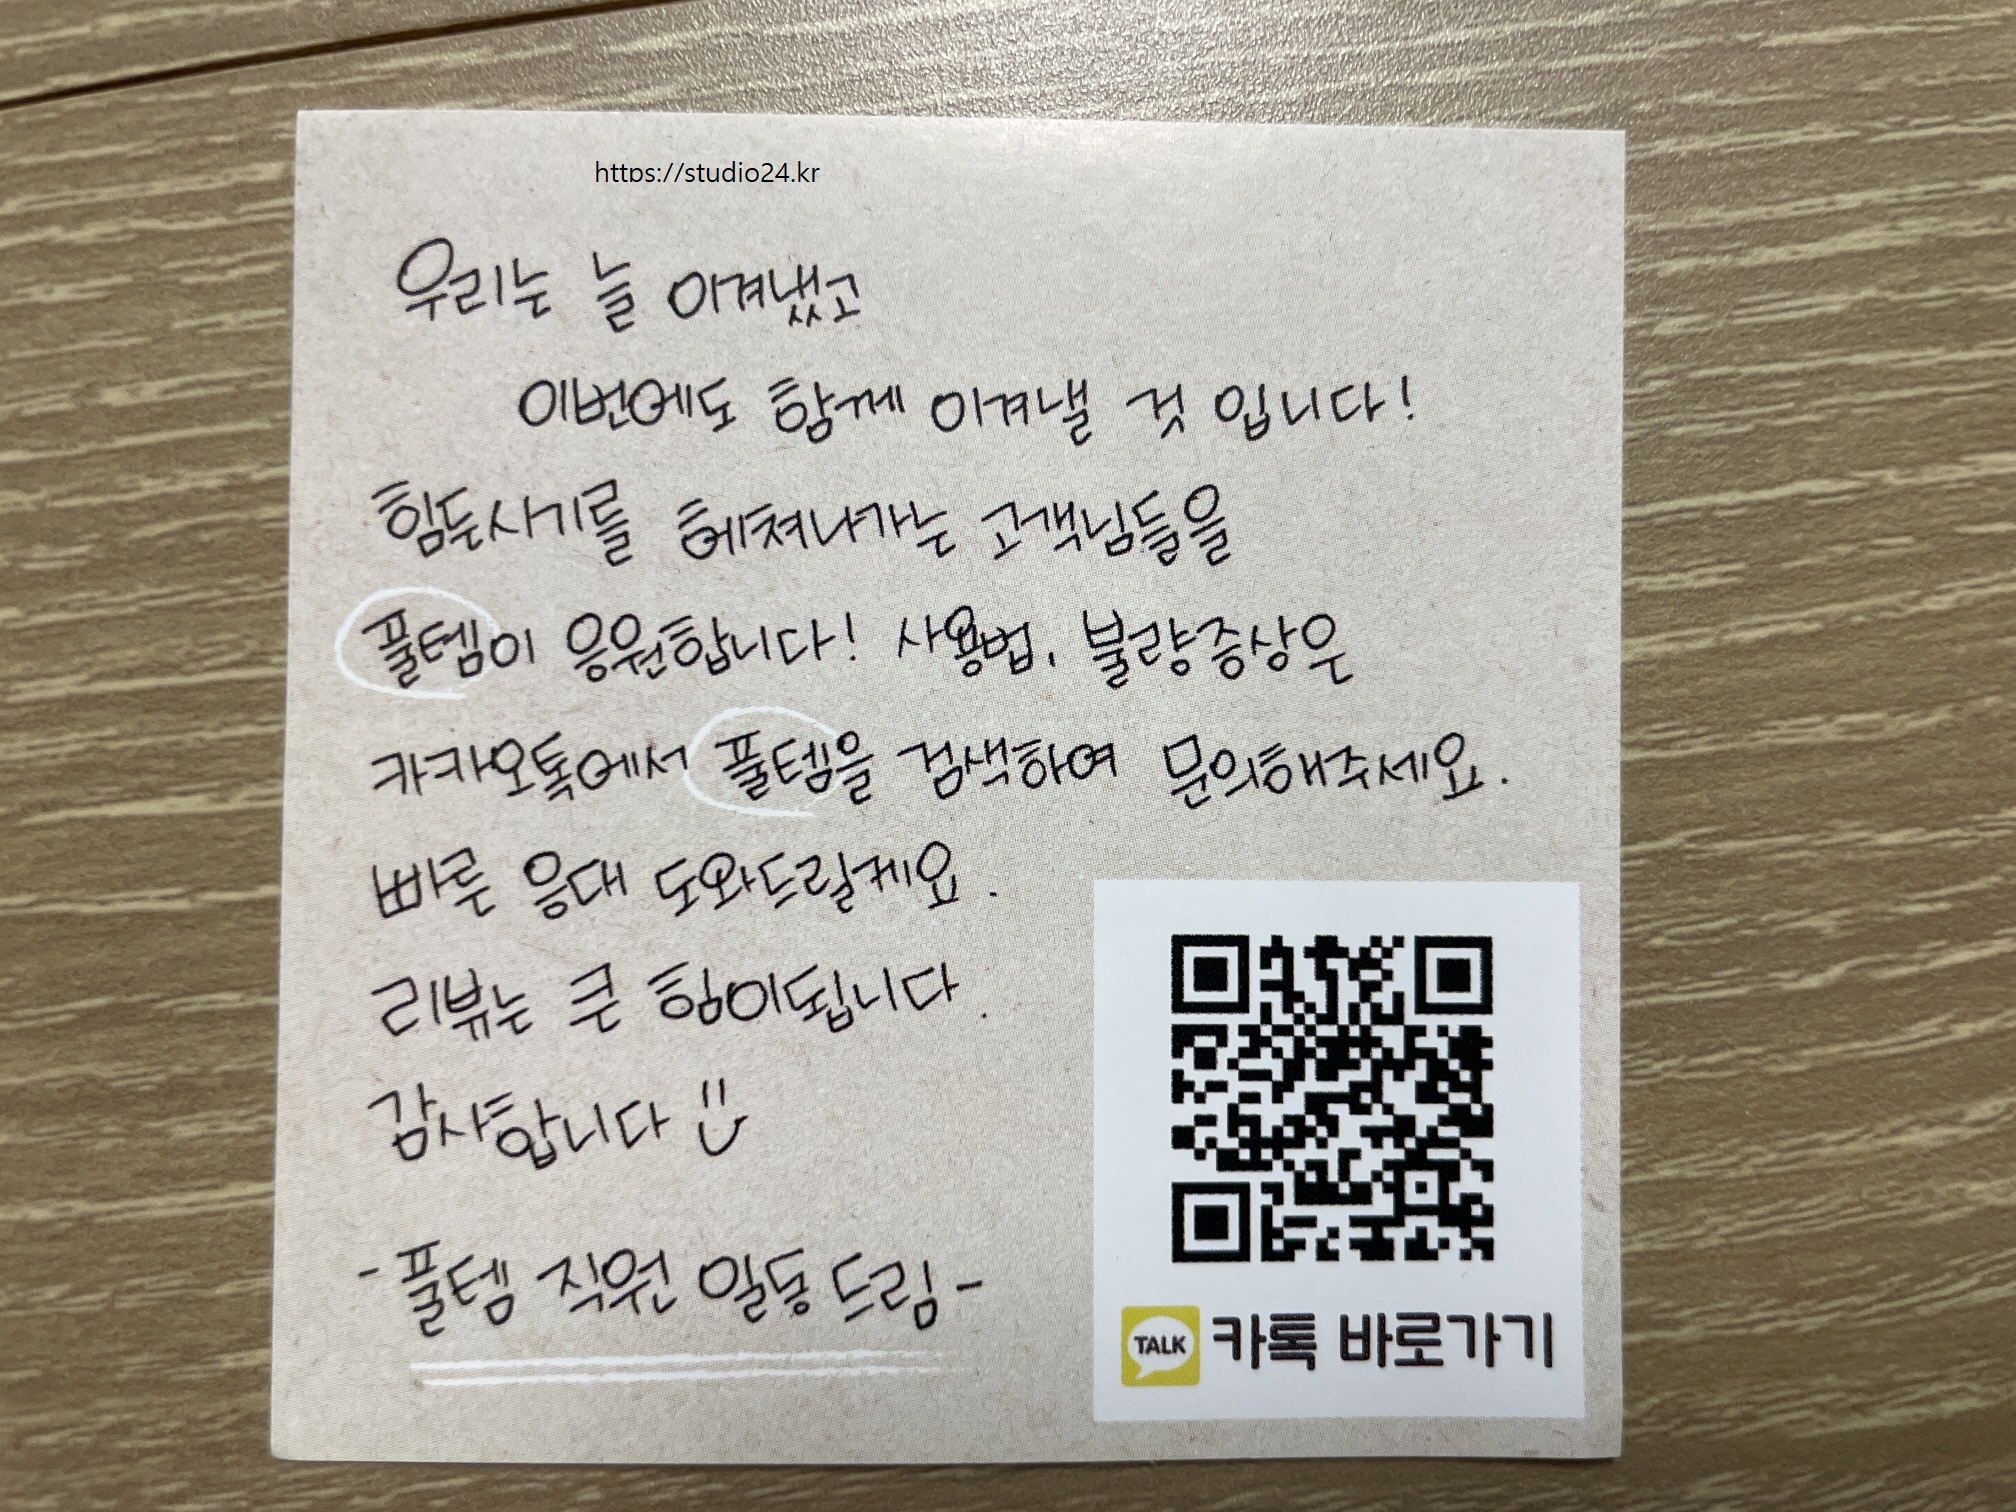 https://studio24.kr
우리는 늘 이겨냈고
이번에도 함께 이겨낼 것 입니다!
힘든시기를 헤쳐나가는 고객님들을
풀템이 응원합니다! 사용법, 불량증상은
카카오톡에서 풀템을 검색하여 문의해주세요.
빠른 응대 도와드릴게요.
리뷰는 큰 힘이됩니다.
감사합니다
-풀템 직원 일동 드림-
TALK 카톡 바로가기